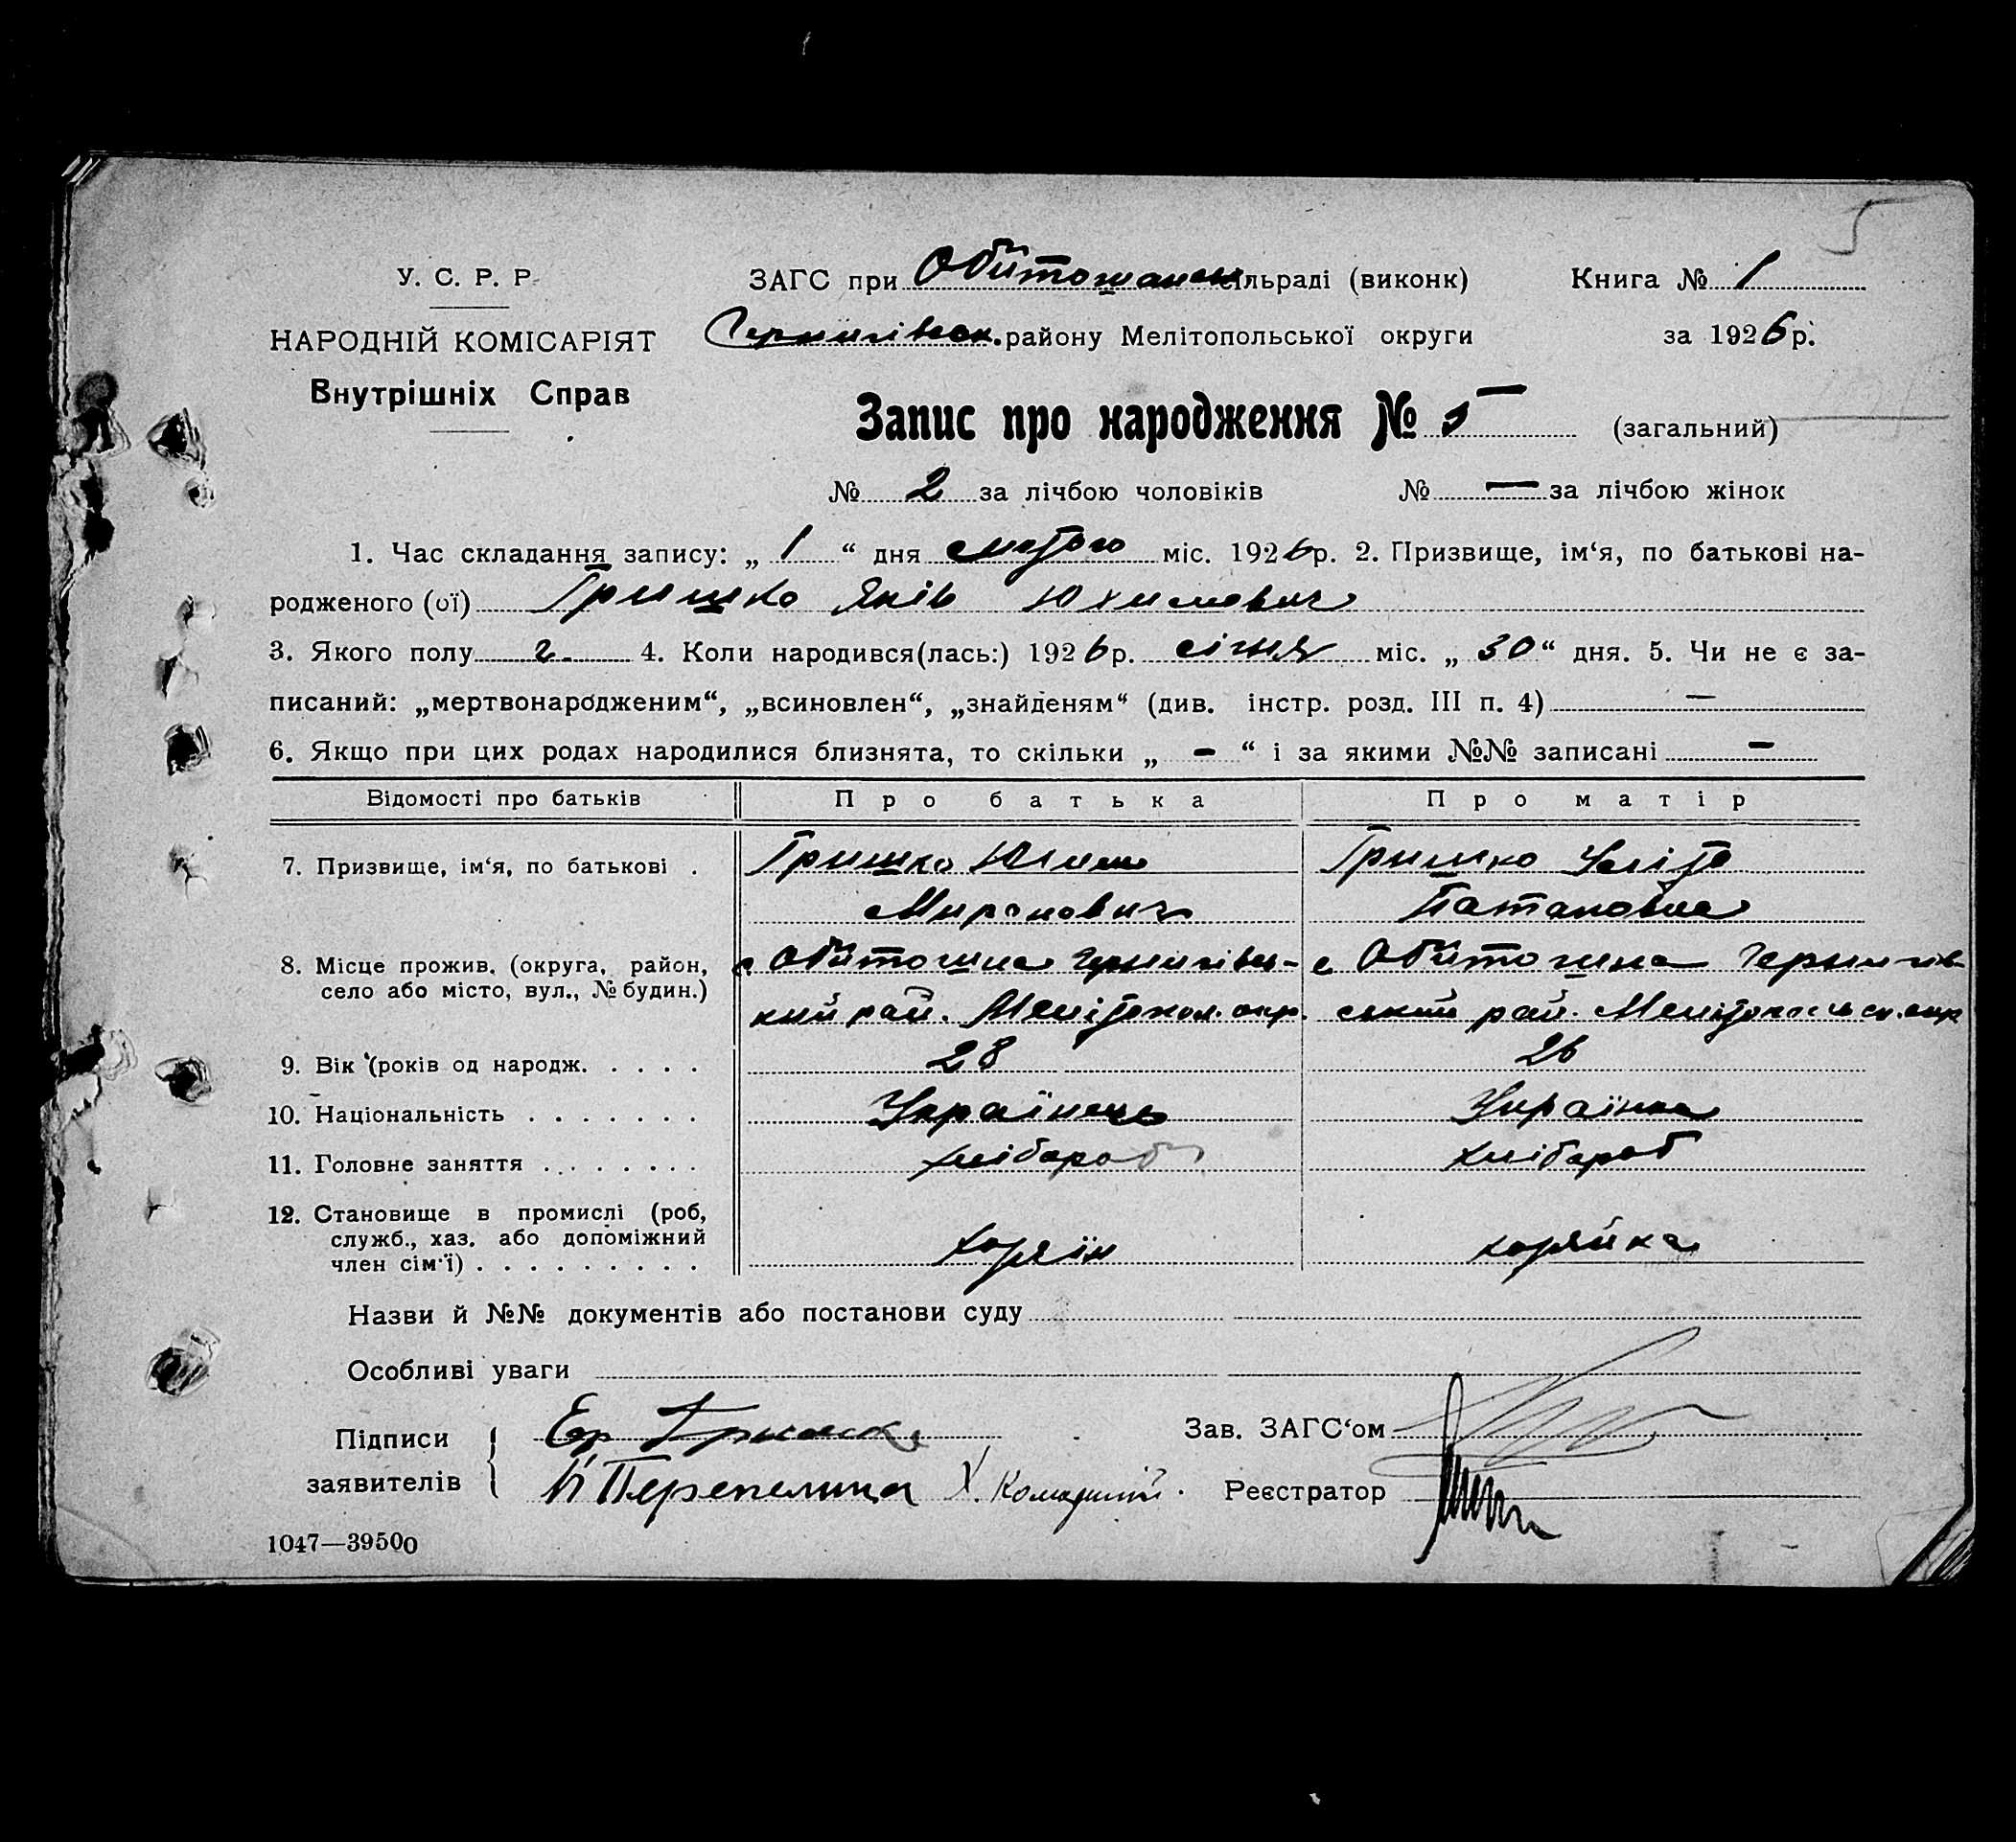 5
У. С. Р. Р.
ЗАГС при Обіточанськ сільраді (виконк) Книга № 1
НАРОДНІЙ КОМІСАРІЯТ
Чернигівськ. району Мелітопольської округи за 1926 р.
Внутрішніх Справ
Запис про народження № 5 (загальний)
№ 2 за лічбою чоловіків № — за лічбою жінок
1. Час складання запису: „ 1 “ дня лютого міс. 1926 р. 2. Призвище, ім‘я, по батькові на-
родженого (ої) Гришко Яків Юхимович
3. Якого полу ч. 4. Коли народився(лась:) 1926 р. січня міс. „ 30 “ дня. 5. Чи не є за-
писаний: „мертвонародженим“, „всиновлен“, „знайденям“ (див. інстр. розд. III п. 4) —
6. Якщо при цих родах народилися близнята, то скільки „ - “ і за якими №№ записані —
Відомості про батьків Про батька Про матір
7. Призвище, ім‘я, по батькові . Гришко Юхим Гришко Уліта
Миронович Патаповна
8. Місце прожив. (округа, район, с Обиточна Чернигівсь- с Обиточна Чернигів-
село або місто, вул., № будин.) кий рай. Мелітопол. окр. ський рай. Мелітопольськ. окр
9. Вік (років од народж. . . . . 28 26
10. Національність . . . . . . . Українець Українка
11. Головне заняття . . . . . . . . хлібороб хлібороб
12. Становище в промислі (роб,
служб., хаз. або допоміжний
член сім‘ї) . . . . . . . . . хазяїн хазяйка
Назви й №№ документів або постанови суду
Особливі уваги
Підписи Гришко Зав. ЗАГС‘ом
заявителів Перепелица Реєстратор
1047—39500